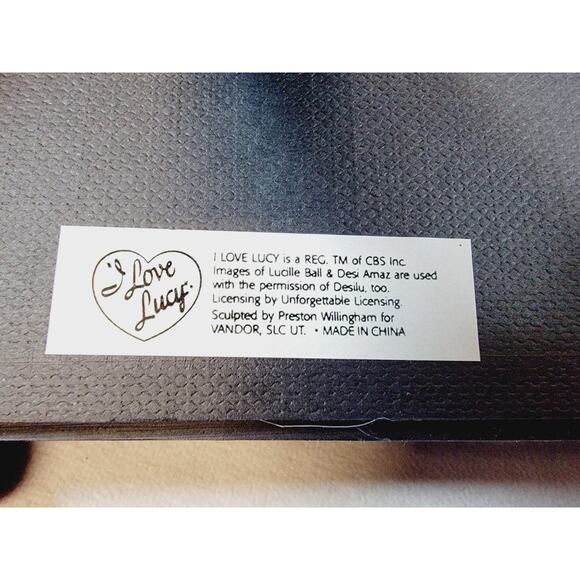 I Love
Lucy.
I LOVE LUCY is a REG. TM of CBS Inc.
Images of Lucille Ball & Desi Arnaz are used
with the permission of Desilu, too.
Licensing by Unforgettable Licensing.
Sculpted by Preston Willingham for
VANDOR, SLC UT. • MADE IN CHINA